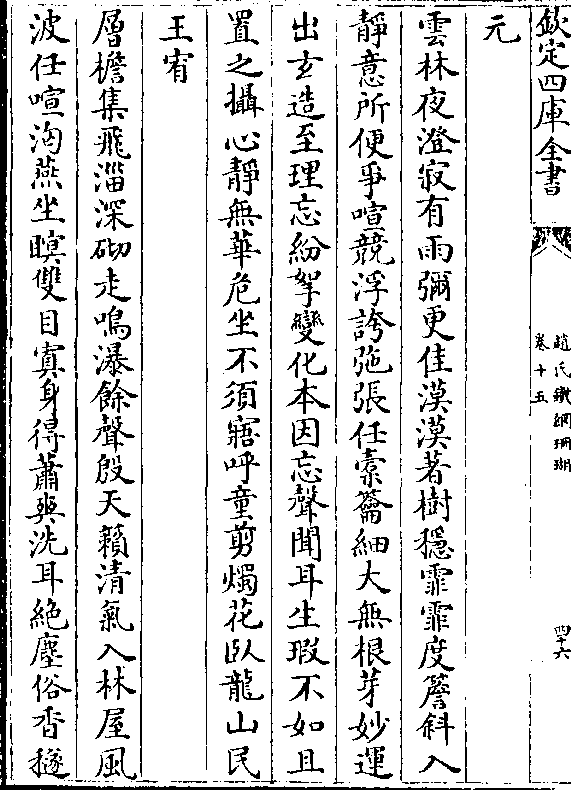 欽定四庫全書
趙氏鐵網珊瑚
卷十五
四十六
元
雲林夜澄寂有雨彌更佳漠漠著樹穩霏霏度簷斜入
靜意所便爭喧競浮誇弛張任橐籥細大無根芽妙運
出玄造至理忘紛拏變化本因忘聲聞耳生瑕不如且
置之攝心靜無華危坐不須寤呼童剪燭花臥龍山民
王宥
層檐集飛淄深砌走鳴瀑餘聲殷天籟清氣入林屋風
波任喧洶燕坐瞑雙目寘身得蕭爽洗耳絕塵俗杳